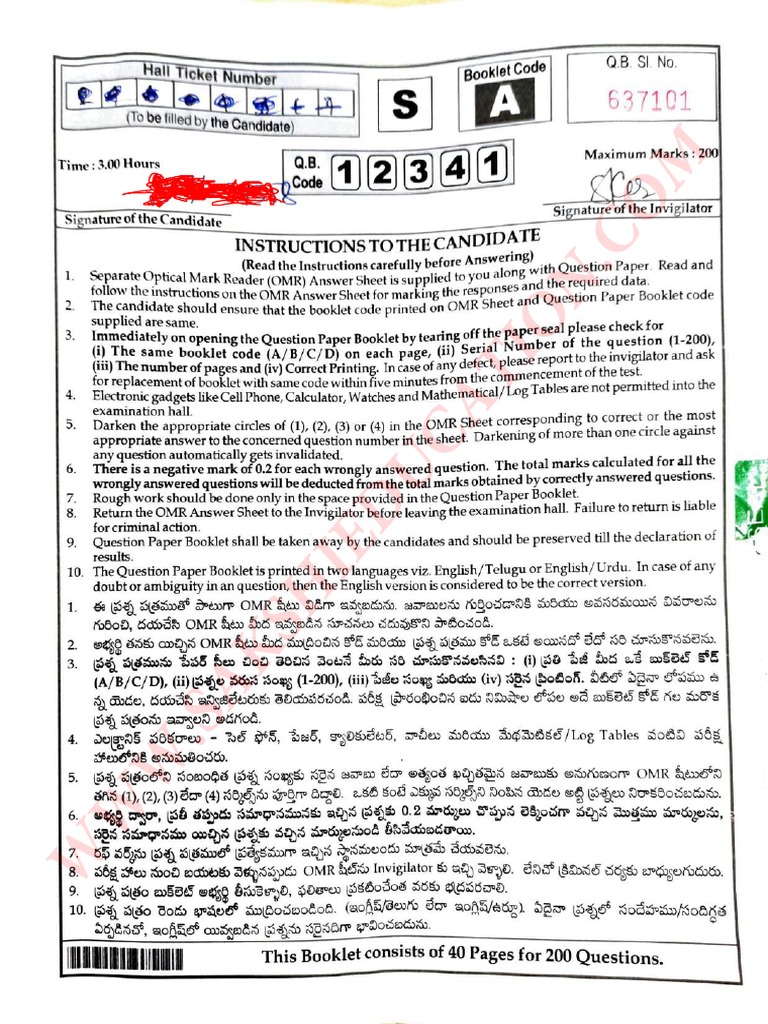 Hall Ticket Number
(To be filled by the Candidate)
S
Booklet Code
A
Q.B. Sl. No.
637101
Time : 3.00 Hours
Q.B.
Code 1 2 3 4 1
Maximum Marks : 200
Signature of the Candidate
Signature of the Invigilator
INSTRUCTIONS TO THE CANDIDATE
(Read the Instructions carefully before Answering)
1. Separate Optical Mark Reader (OMR) Answer Sheet is supplied to you along with Question Paper. Read and
follow the instructions on the OMR Answer Sheet for marking the responses and the required data.
2. The candidate should ensure that the booklet code printed on OMR Sheet and Question Paper Booklet code
supplied are same.
3. Immediately on opening the Question Paper Booklet by tearing off the paper seal please check for
(i) The same booklet code (A/B/C/D) on each page, (ii) Serial Number of the question (1-200),
(iii) The number of pages and (iv) Correct Printing. In case of any defect, please report to the invigilator and ask
for replacement of booklet with same code within five minutes from the commencement of the test.
4. Electronic gadgets like Cell Phone, Calculator, Watches and Mathematical/Log Tables are not permitted into the
examination hall.
5. Darken the appropriate circles of (1), (2), (3) or (4) in the OMR Sheet corresponding to correct or the most
appropriate answer to the concerned question number in the sheet. Darkening of more than one circle against
any question automatically gets invalidated.
6. There is a negative mark of 0.2 for each wrongly answered question. The total marks calculated for all the
wrongly answered questions will be deducted from the total marks obtained by correctly answered questions.
7. Rough work should be done only in the space provided in the Question Paper Booklet.
8. Return the OMR Answer Sheet to the Invigilator before leaving the examination hall. Failure to return is liable
for criminal action.
9. Question Paper Booklet shall be taken away by the candidates and should be preserved till the declaration of
results.
10. The Question Paper Booklet is printed in two languages viz. English/Telugu or English/Urdu. In case of any
doubt or ambiguity in an question, then the English version is considered to be the correct version.
1. ఈ ప్రశ్న పత్రముతో పాటుగా OMR షీటు విడిగా ఇవ్వబడును. జవాబులను గుర్తించడానికి మరియు అవసరమయిన వివరాలను
గురించి, దయచేసి OMR షీటు మీద ఇవ్వబడిన సూచనలు చదువుకొని పాటించండి.
2. అభ్యర్థి తనకు యిచ్చిన OMR షీటు మీద ముద్రించిన కోడ్ మరియు ప్రశ్న పత్రము కోడ్ ఒకటే అయినదో లేదో సరి చూసుకొనవలెను.
3. ప్రశ్న పత్రమును పేపర్ సీలు చించి తెరిచిన వెంటనే మీరు సరి చూసుకొనవలసినవి : (i) ప్రతి పేజీ మీద ఒకే బుక్‌లెట్ కోడ్
(A/B/C/D), (ii) ప్రశ్నల వరుస సంఖ్య (1-200), (iii) పేజీల సంఖ్య మరియు (iv) సరైన ప్రింటింగ్. వీటిలో ఏదైనా లోపము ఉ
న్న యెడల, దయచేసి ఇన్విజిలేటరుకు తెలియపరచండి. పరీక్ష ప్రారంభించిన ఐదు నిమిషాల లోపల అదే బుక్‌లెట్ కోడ్ గల మరొక
ప్రశ్న పత్రంను ఇవ్వాలని అడగండి.
4. ఎలక్ట్రానిక్ పరికరాలు – సెల్ ఫోన్, పేజర్, క్యాలికులేటర్, వాచీలు మరియు మేథమెటికల్/Log Tables వంటివి పరీక్ష
హాలులోనికి అనుమతించరు.
5. ప్రశ్న పత్రంలోని సంబంధిత ప్రశ్న సంఖ్యకు సరైన జవాబు లేదా అత్యంత ఖచ్చితమైన జవాబుకు అనుగుణంగా OMR షీటులోని
తగిన (1), (2), (3) లేదా (4) సర్కిల్స్‌ను పూర్తిగా దిద్దాలి. ఒకటి కంటే ఎక్కువ సర్కిల్స్‌ని నింపిన యెడల అట్టి ప్రశ్నలు నిరాకరించబడును.
6. అభ్యర్థి ద్వారా, ప్రతీ తప్పుడు సమాధానమునకు ఇచ్చిన ప్రశ్నకు 0.2 మార్కులు చొప్పున లెక్కించగా వచ్చిన మొత్తము మార్కులను,
సరైన సమాధానము యిచ్చిన ప్రశ్నకు వచ్చిన మార్కులనుండి తీసివేయబడతాయి.
7. రఫ్ వర్క్‌ను ప్రశ్న పత్రములో ప్రత్యేకముగా ఇచ్చిన స్థానమలందు మాత్రమే చేయవలెను.
8. పరీక్ష హాలు నుంచి బయటకు వెళ్ళునప్పుడు OMR షీట్‌ను Invigilator కు ఇచ్చి వెళ్ళాలి. లేనిచో క్రిమినల్ చర్యకు బాధ్యులగుదురు.
9. ప్రశ్న పత్రం బుక్‌లెట్ అభ్యర్థి తీసుకెళ్ళాలి, ఫలితాలు ప్రకటించేంత వరకు భద్రపరచాలి.
10. ప్రశ్న పత్రం రెండు భాషలలో ముద్రించబడింది. (ఇంగ్లీష్/తెలుగు లేదా ఇంగ్లీష్/ఉర్దూ). ఏదైనా ప్రశ్నలో సందేహము/సందిగ్ధత
ఏర్పడినచో, ఇంగ్లీష్‌లో యివ్వబడిన ప్రశ్నను సరైనదిగా భావించబడును.
This Booklet consists of 40 Pages for 200 Questions.
WWW.SAKSHIEDUCATION.COM